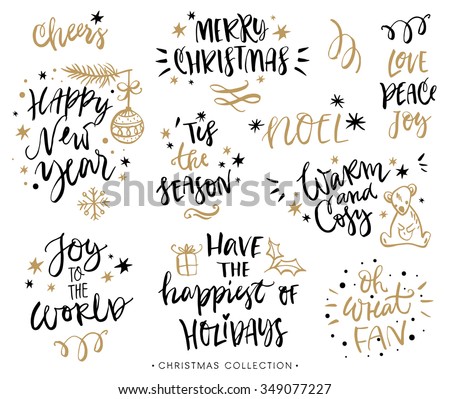 Cheers
MERRY
CHRISTMAS
LOVE
PEACE
Joy
HAPPY
New
year
'Tis
the
SEASON
NOEL
WARM
and
Cosy
Joy
TO THE
WORLD
HAVE
THE
happiest of
HOLIDAYS
oh
what
FAN
• CHRISTMAS COLLECTION •
shutterstock
IMAGE ID: 349077227
www.shutterstock.com